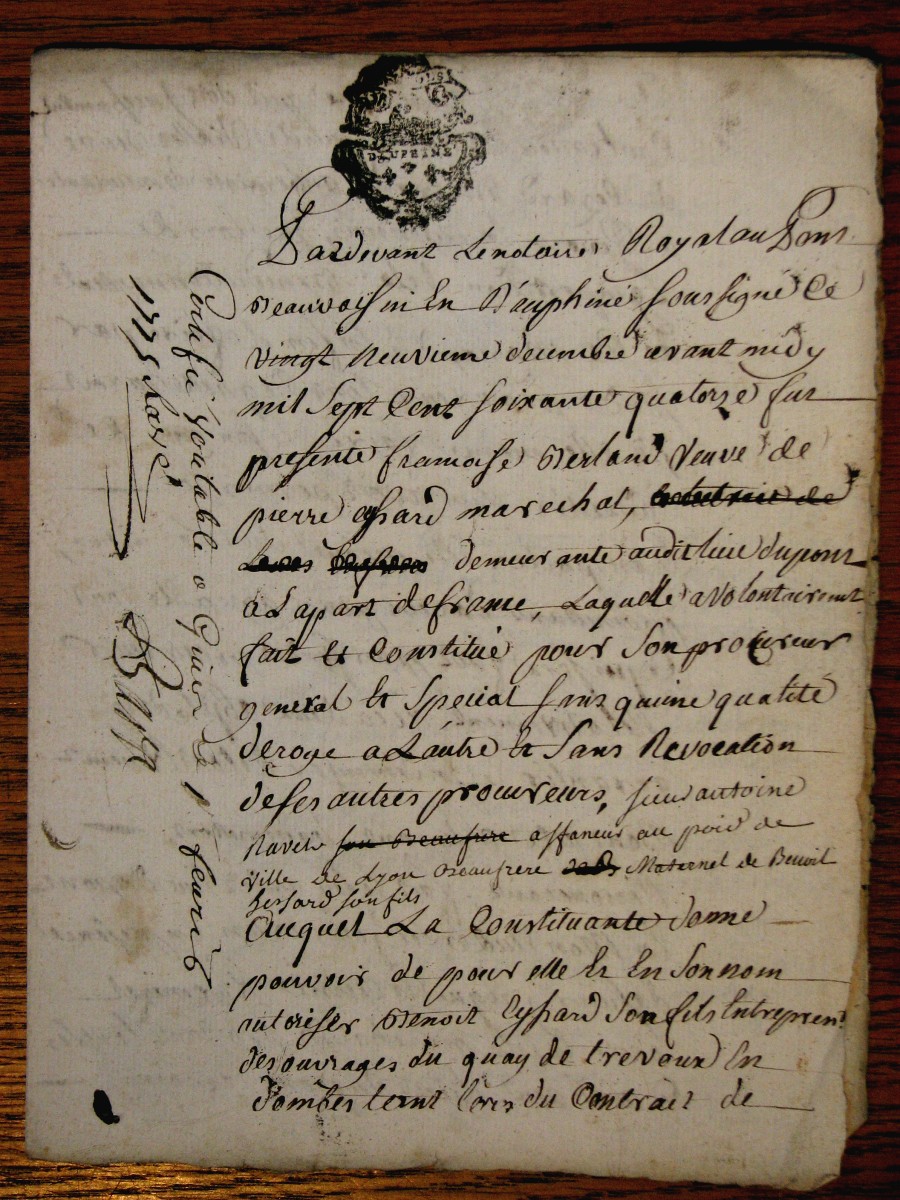 DAUPHINE
Pardevant Le notaire Royal au Pont
Beauvoisin En Dauphiné soussigné Ce
vingt neuvieme decembre avant midy
mil Sept Cent soixante quatorze fut
presente francoise Berland veuve de
pierre essard marechal,
demeurante audit lieu du pont
a La part de france, Laquelle a volontairement
fait et Constitué pour Son procureur
general et Special sans qu'une qualité
deroge a L'autre et Sans Revocation
de Ses autres procureurs, sieur antoine
Ravet son Beaufrere affaneur au poid de
ville de Lyon Beaufrere Maternel de Benoit
son fils
Auquel La Constituante donne
pouvoir de pour elle et En Son nom
autoriser Benoit Eyssard Son fils Entrepren.r
des ouvrages du quay de trevoux En
dombes tant lors du Contrait de
le 1 feurie
1775